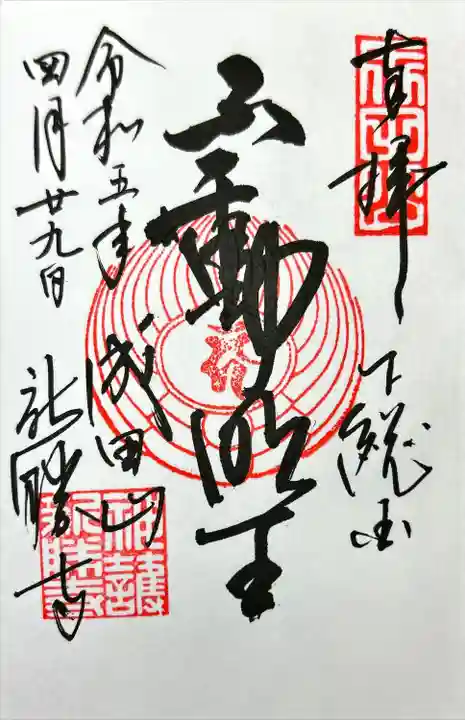 奉拝
下総国
不動明王
成田山
新勝寺
令和五年
四月廿九日
神護新勝寺